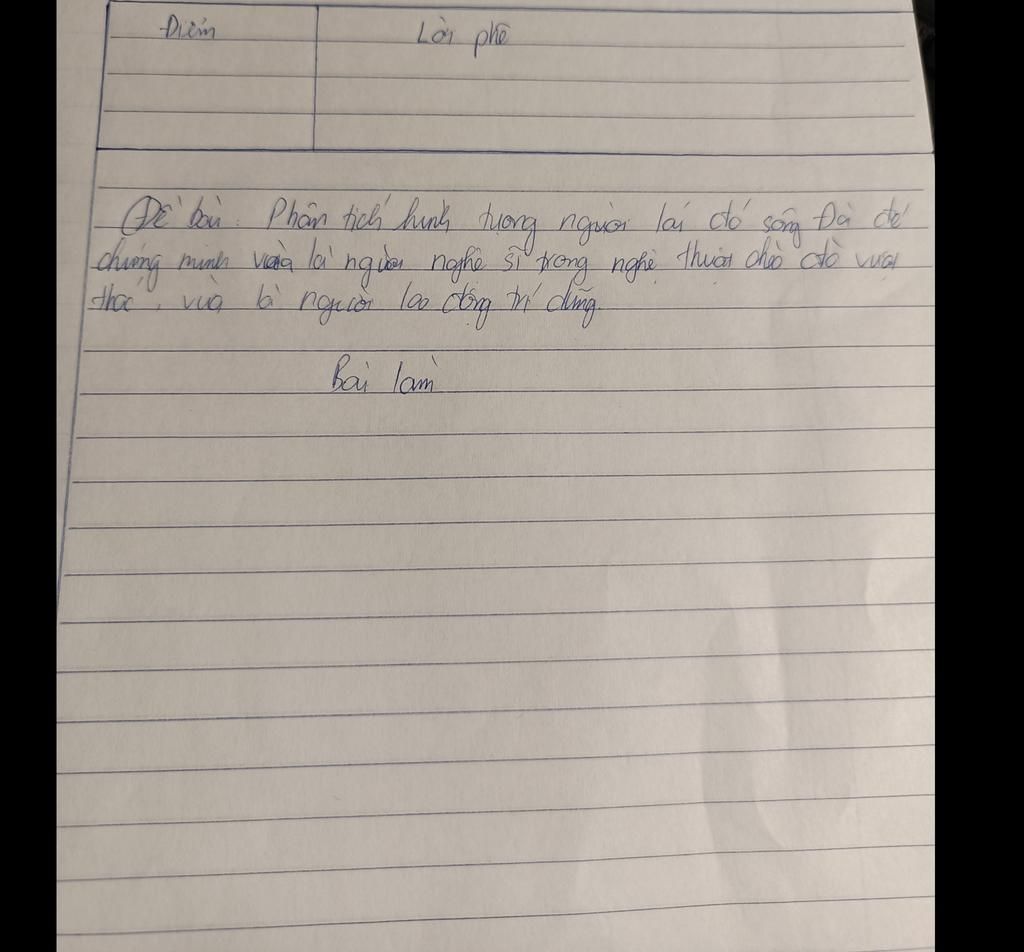 Điểm
Lời phê
Đề bài: Phân tích hình tượng người lái đò sông Đà để
chứng minh vừa là người nghệ sĩ trong nghệ thuật chèo đò vượt
thác, vừa là người lao động trí dũng.
Bài làm